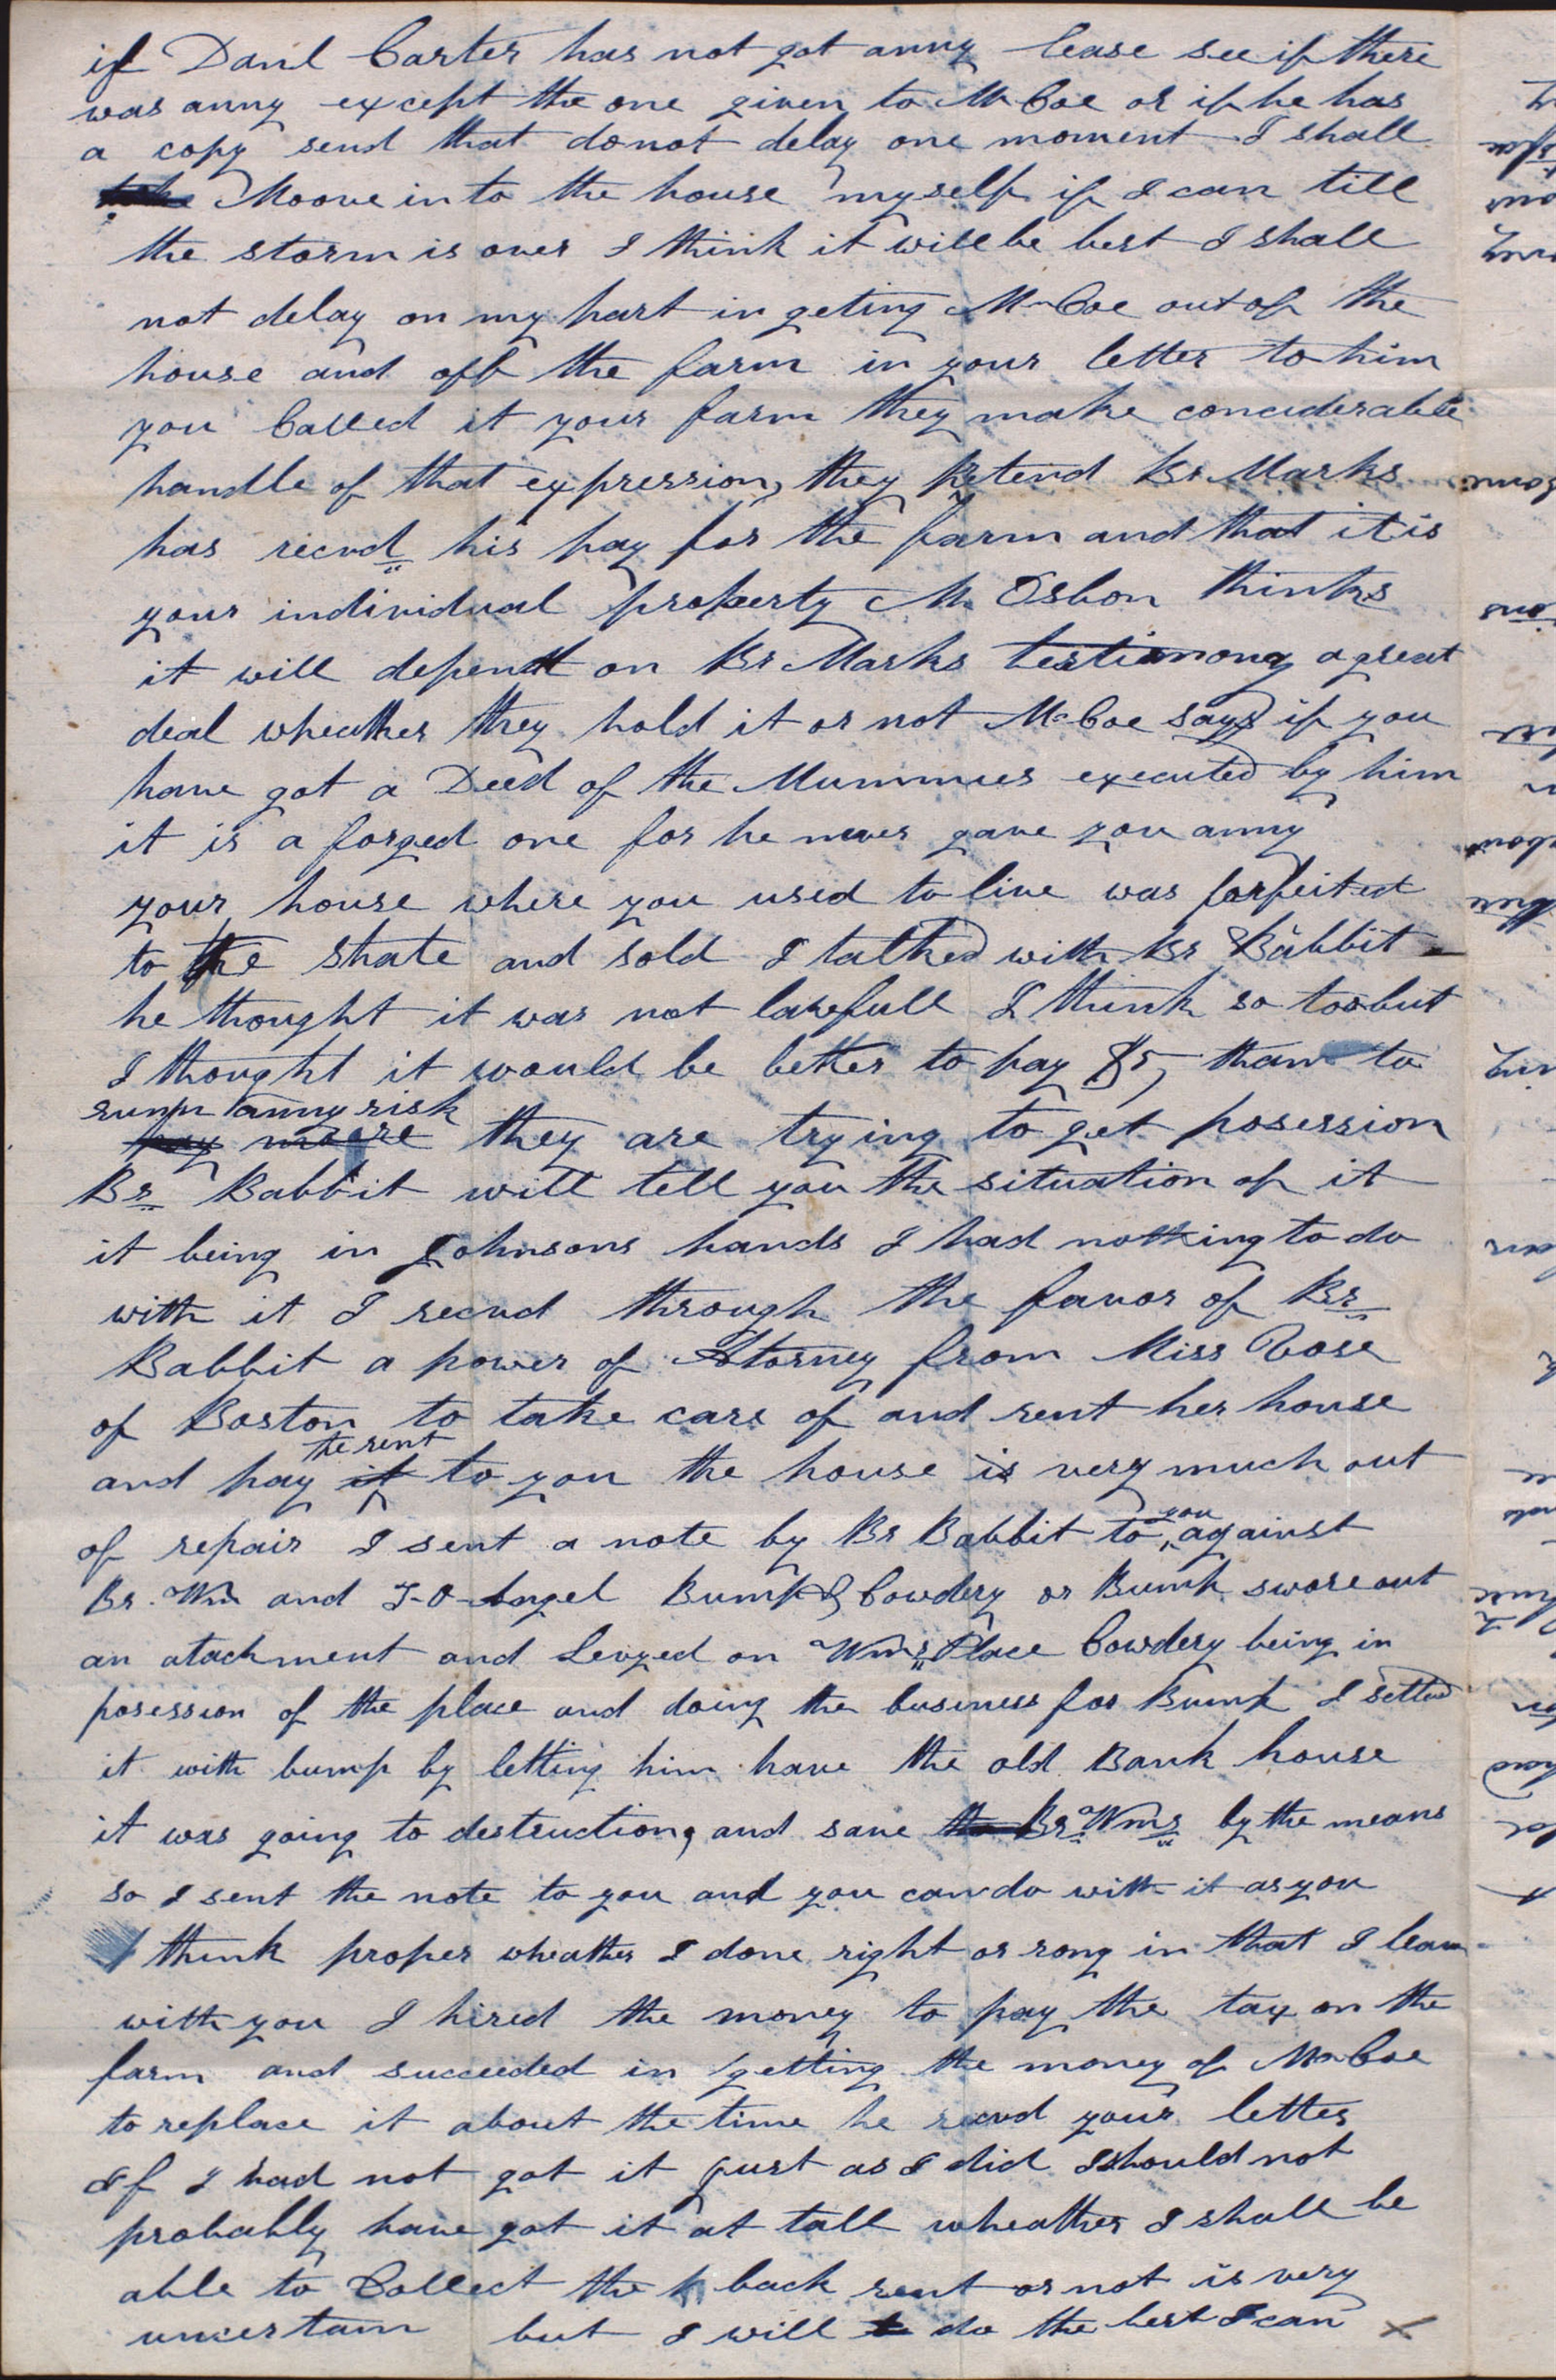 if Danl Carter has not got anny lease see if there
was anny except the one given to Mr Coe or if he has
a copy send that do not delay one moment I shall
Moove in to the house myself if I can till
the storm is over I think it will be best I shall
not delay on my part in geting Mr Coe out of the
house and off the farm in your letter to him
you Called it your farm they make conciderable
handle of that expression, they pretend Br Marks
has riecvd his pay for the farm and that it is
your individual property Mr Osbon thinks
it will depend on Br Marks testimony a great
deal wheather they hold it or not Mr Coe says if you
have got a Deed of the Mummies executed by him
it is a forged one for he never gave you anny
your house where you used to live was forfeited
to the state and sold I talked with Br Babbit
he thought it was not lawfull I think so too but
I thought it would be better to pay $5, than to
runn anny risk
pay moore they are trying to get posession
Br Babbit will tell you the situation of it
it being in Johnsons hands I had nothing to do
with it I reecvd through the favor of Br
Babbit a power of Atorney from Miss Vose
of Boston to take care of and rent her house
the rent
and pay it to you the house is very much out
of repair I sent a note by Br Babbit to you against
Br. Wm and T-O-Angel Bump & Cowdery or Bump swore out
an atachment and Levyed on Wms Place Cowdery being in
posession of the place and doing the business for Bump I settled
it with bump by letting him have the old Bank house
it was going to destruction, and save the Br Wms by the means
so I sent the note to you and you can do with it as you
think proper wheather I done right or rong in that I leave
with you I hired the money to pay the tax on the
farm and succeeded in getting the money of Mr Coe
to replace it about the time he reecvd your letter
If I had not got it just as I did I should not
probably have got it at tall wheather I shall be
able to Collect the back rent or not is very
uncertain but I will do the best I can ×